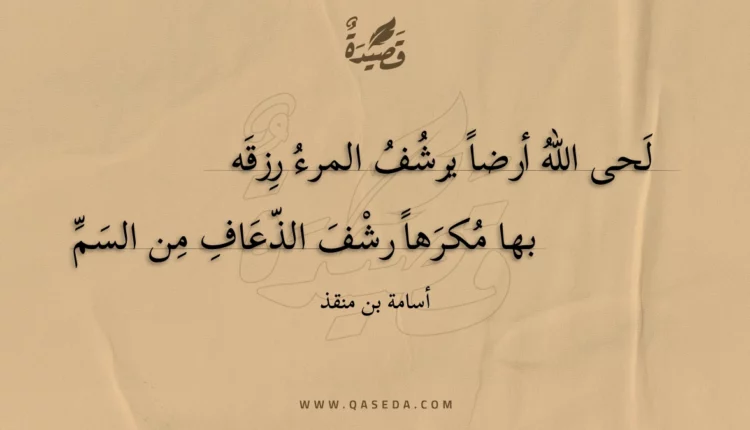 قَصِيدَةٌ
لَحى اللهُ أرضاً يرشُفُ المرءُ رِزقَه
بها مُكرَهاً رشْفَ الذّعَافِ مِن السَمِّ
أسامة بن منقذ
WWW.QASEDA.COM